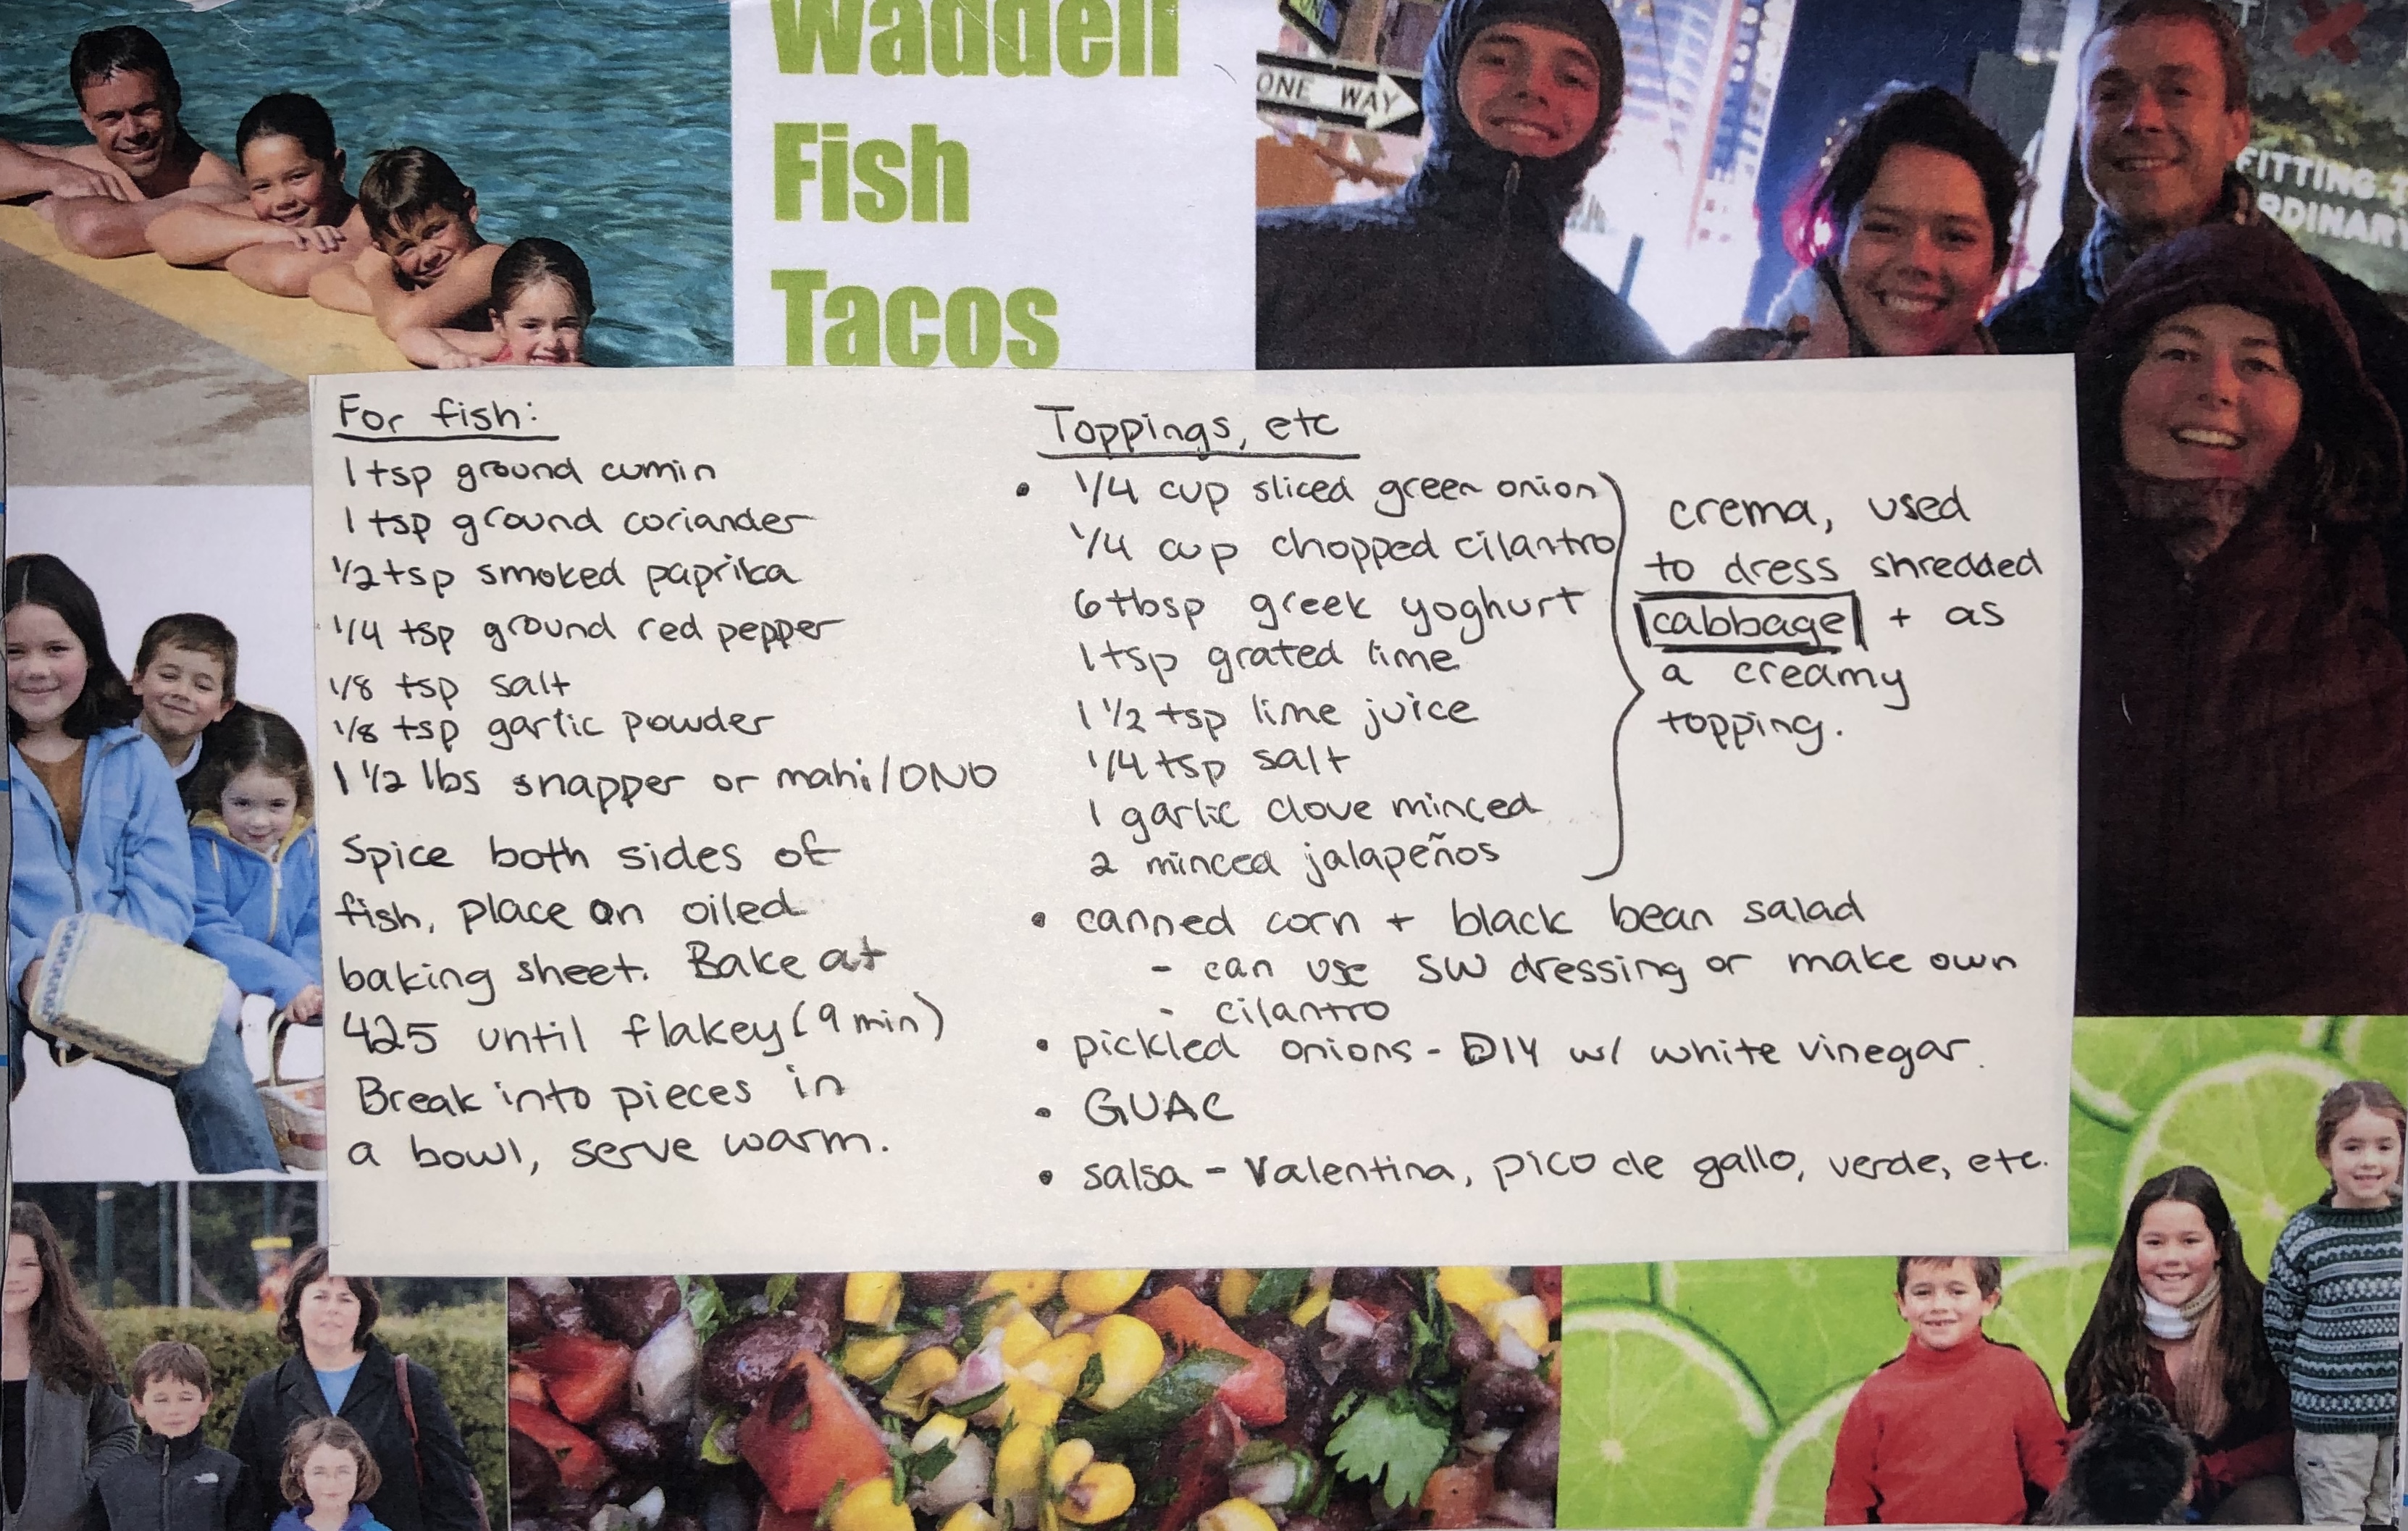 Waddell
Fish
Tacos
ONE WAY
FITTING
RDINARY
For fish:
1 tsp ground cumin
1 tsp ground coriander
1/2 tsp smoked paprika
1/4 tsp ground red pepper
1/8 tsp salt
1/8 tsp garlic powder
1 1/2 lbs snapper or mahi/ONO
Spice both sides of
fish, place on oiled
baking sheet. Bake at
425 until flakey (9 min)
Break into pieces in
a bowl, serve warm.
Toppings, etc
• 1/4 cup sliced green onion
1/4 cup chopped cilantro
6 tbsp greek yoghurt
1 tsp grated lime
1 1/2 tsp lime juice
1/4 tsp salt
1 garlic clove minced
2 minced jalapeños
crema, used
to dress shredded
cabbage + as
a creamy
topping.
• canned corn + black bean salad
- can use SW dressing or make own
- cilantro
• pickled onions - DIY w/ white vinegar.
• GUAC
• salsa - Valentina, pico de gallo, verde, etc.